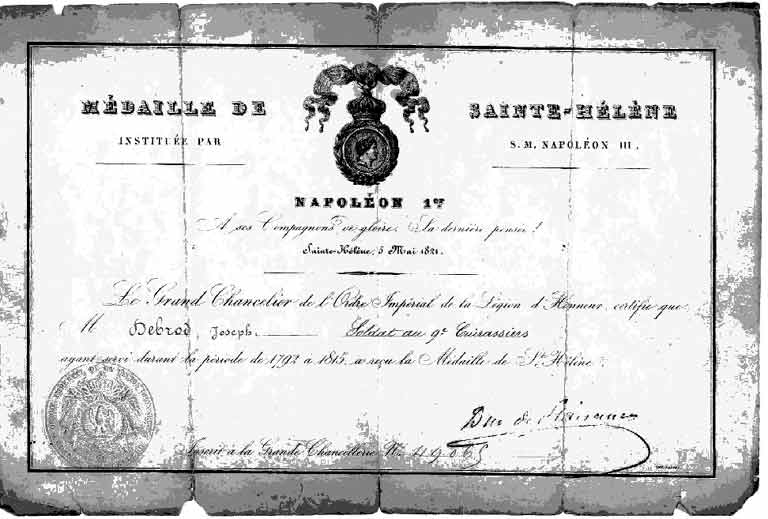 MÉDAILLE DE SAINTE-HÉLÈNE
INSTITUÉE PAR S. M. NAPOLÉON III.
NAPOLÉON 1er
A ses Compagnons de gloire, Sa dernière pensée!
Sainte-Hélène, 5 Mai 1821.
Le Grand Chancelier de l'Ordre Impérial de la Légion d'Honneur, certifie que
M Debrod, Joseph, Soldat au 9e Cuirassiers
ayant servi durant la période de 1792 à 1815, a reçu la Médaille de Ste Hélène.
Duc de
Inscrit à la Grande Chancellerie No